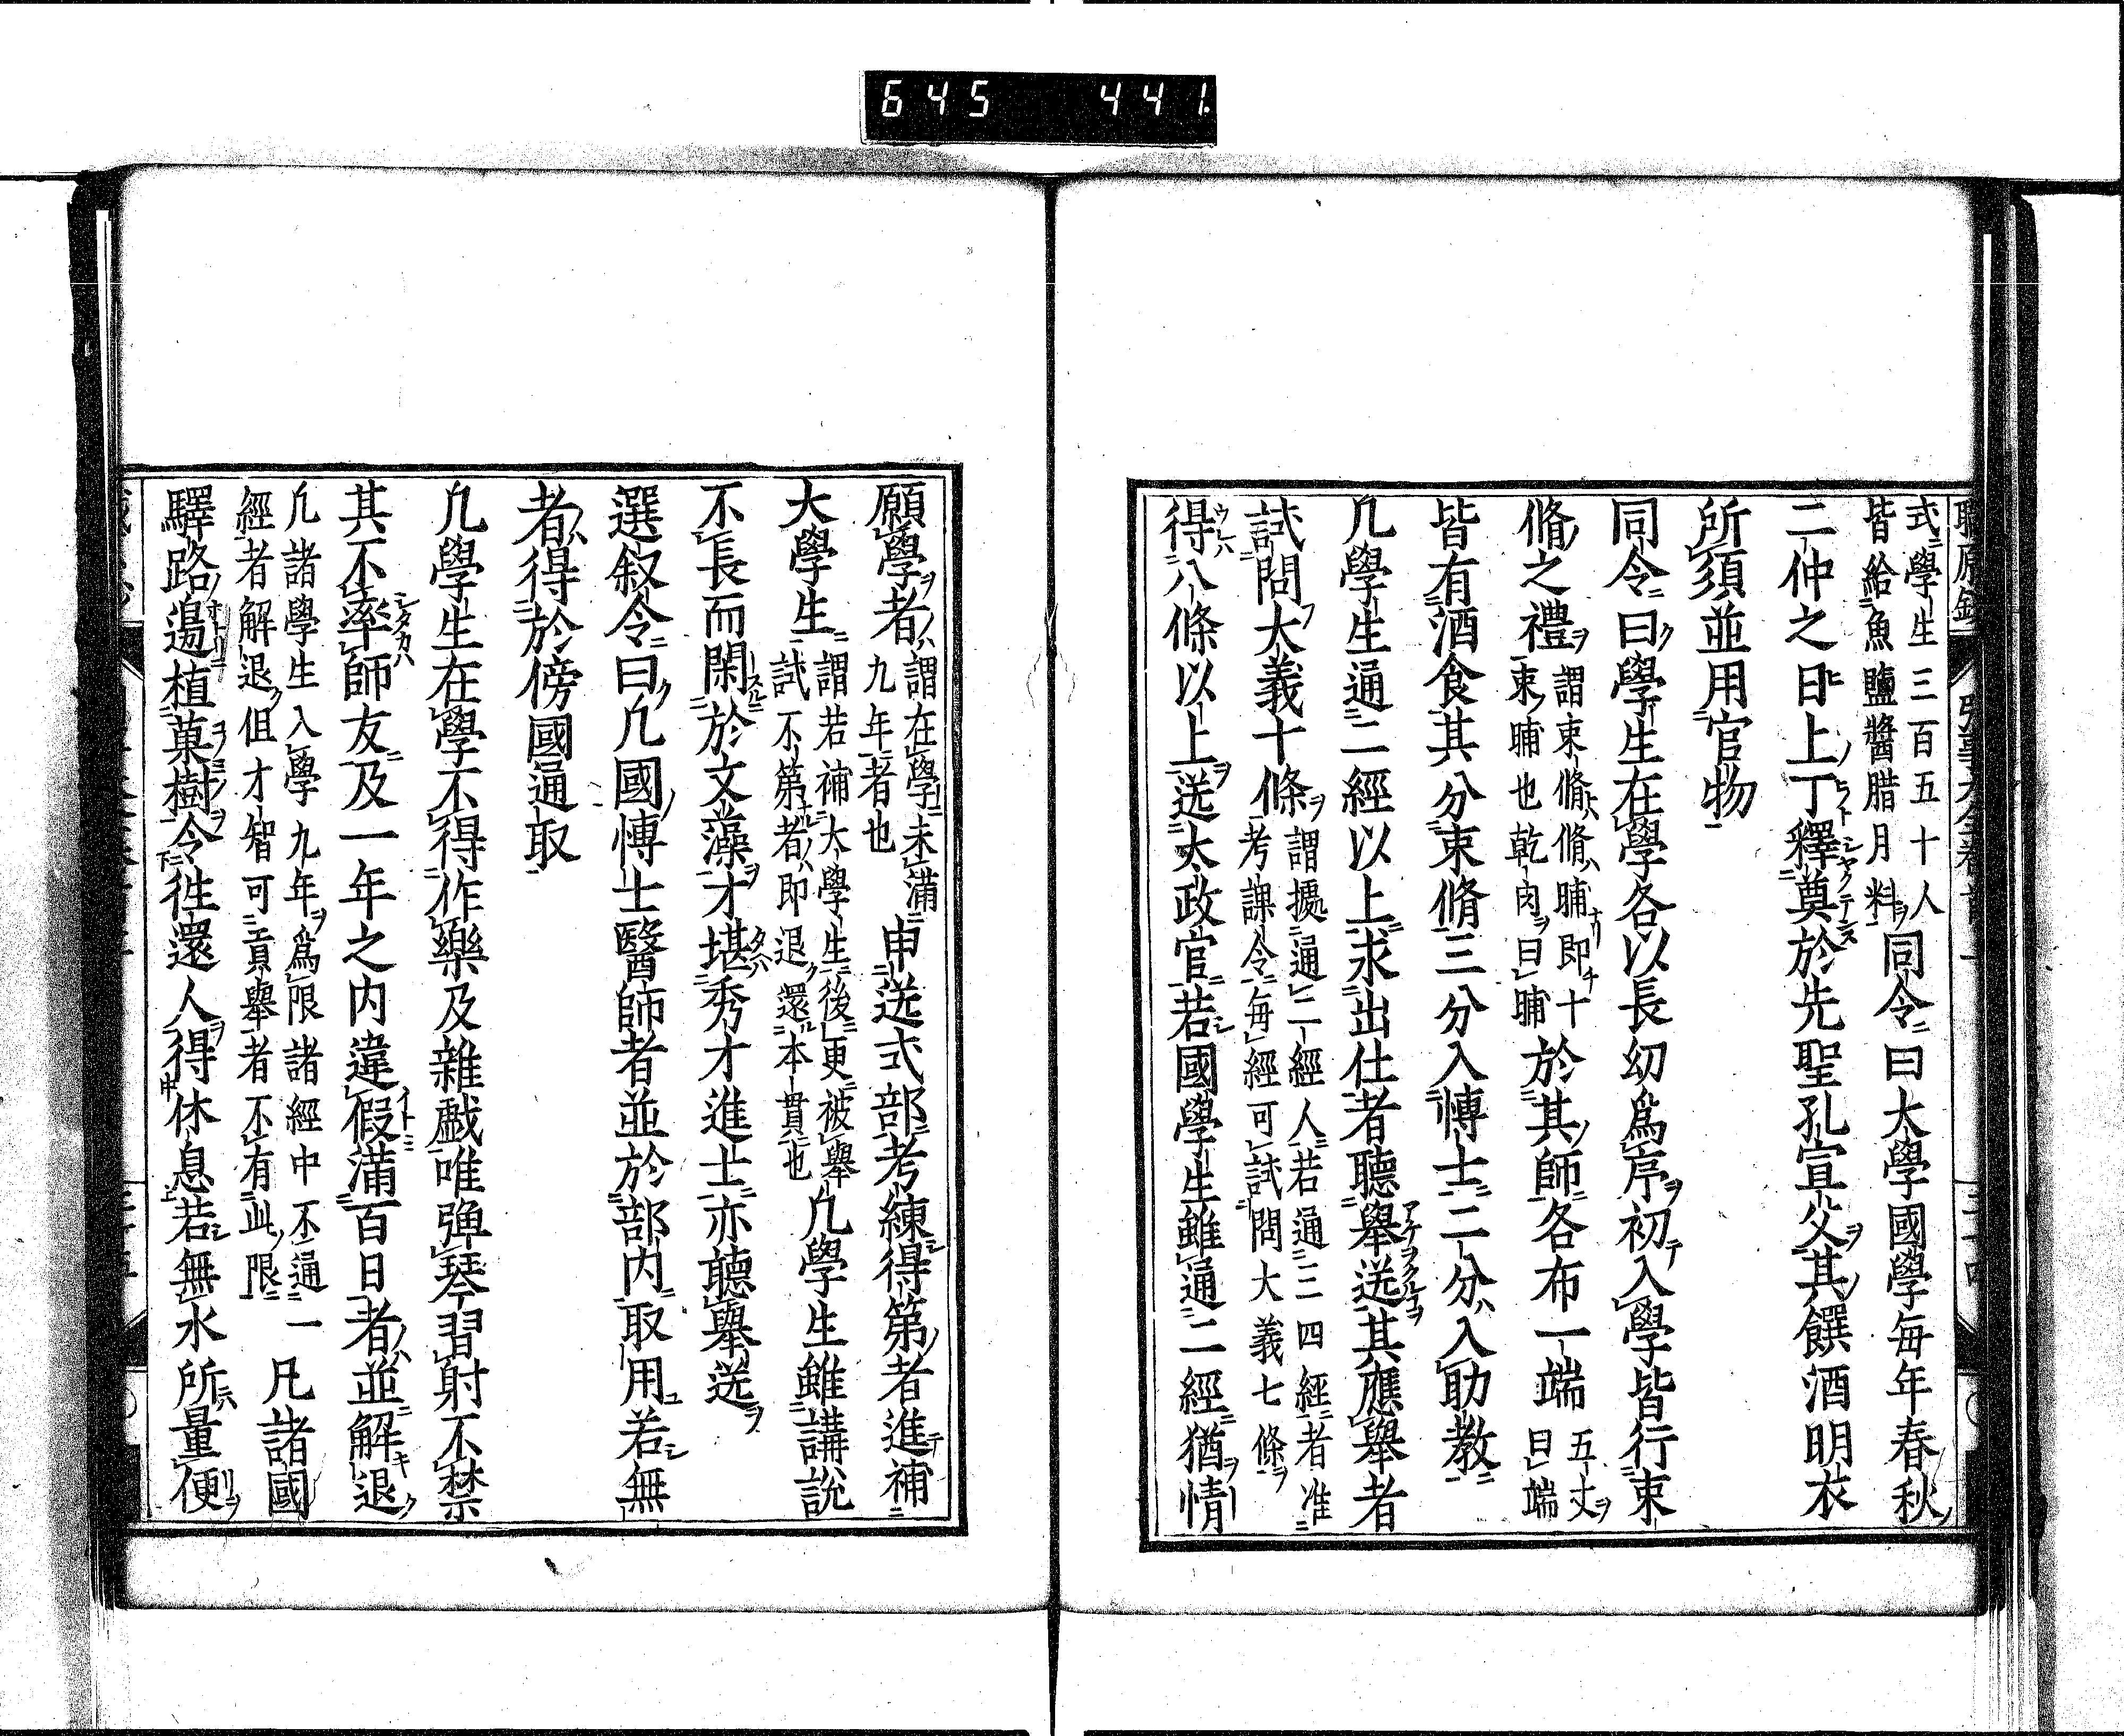 645 441
式學生三百五十人
皆給魚鹽醬腊月料
同令曰大學國學毎年春秋
二仲之日上丁釋奠於先聖孔宣父其饌酒明衣
所須並用官物
同令曰學生在學各以長幼爲序初入學皆行束
脩之禮
謂束脩脩脯即十
束脯也乾肉曰脯
於其師各布一端
五丈
曰端
皆有酒食其分束脩三分入博士二分入助教
凡學生通二經以上求出仕者聽舉送其應舉者
試問大義十條
謂據通二經人若通三四經者准
考課令毎經可試問大義七條
得八條以上送太政官若國學生雖通二經猶情
願學者
謂在學未滿
九年者也
申送式部考練得第者進補
大學生
謂若補大學生後更被舉
試不第者即退還本貫也
凡學生雖講説
不長而閑於文藻才堪秀才進士亦聽舉送
選叙令曰凡國博士醫師者並於部内取用若無
者得於傍國通取
凡學生在學不得作樂及雜戯唯彈琴習射不禁
其不率師友及一年之内違假滿百日者並解退
凡諸學生入學九年爲限諸經中不通一
經者解退但才智可貢舉者不有此限
凡諸國
驛路邊植菓樹令往還人得休息若無水所量便